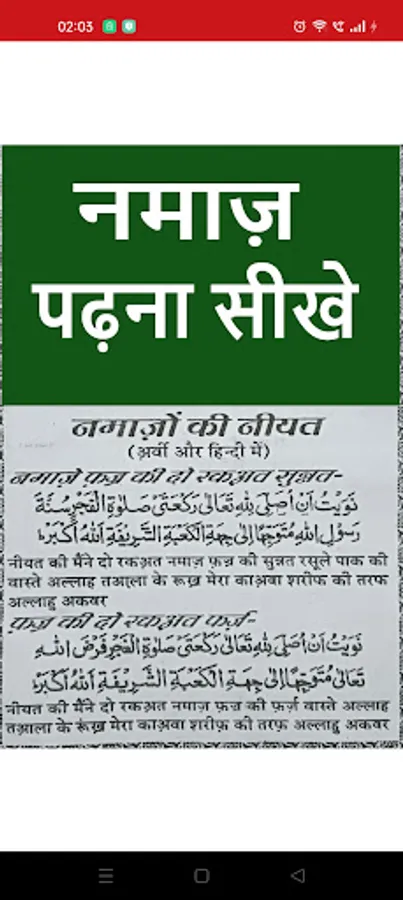 02:03
नमाज़
पढ़ना सीखे
नमाज़ों की नीयत
(अर्वी और हिन्दी में)
नमाज़े फ़ज्र की दो रकअ़त सुन्नत-
نَوَيْتُ اَنْ اُصَلِّىَ لِلّٰهِ تَعَالٰى رَكْعَتَىْ صَلٰوةِ الْفَجْرِ سُنَّةَ
رَسُوْلِ اللّٰهِ مُتَوَجِّهًا اِلٰى جِهَةِ الْكَعْبَةِ الشَّرِيْفَةِ اَللّٰهُ اَكْبَرُ
नीयत की मैंने दो रकअ़त नमाज़ फ़ज्र की सुन्नत रसूले पाक की
वास्ते अल्लाह तआ़ला के रूख़ मेरा काअ़वा शरीफ की तरफ
अल्लाहु अकवर
फ़ज्र की दो रकअ़त फ़र्ज़-
نَوَيْتُ اَنْ اُصَلِّىَ لِلّٰهِ تَعَالٰى رَكْعَتَىْ صَلٰوةِ الْفَجْرِ فَرْضَ اللّٰهِ
تَعَالٰى مُتَوَجِّهًا اِلٰى جِهَةِ الْكَعْبَةِ الشَّرِيْفَةِ اَللّٰهُ اَكْبَرُ
नीयत की मैंने दो रकअ़त नमाज़ फ़ज्र की फ़र्ज़ वास्ते अल्लाह
तआ़ला के रूंख़ मेरा काअ़वा शरीफ़ की तरफ़ अल्लाहु अकवर